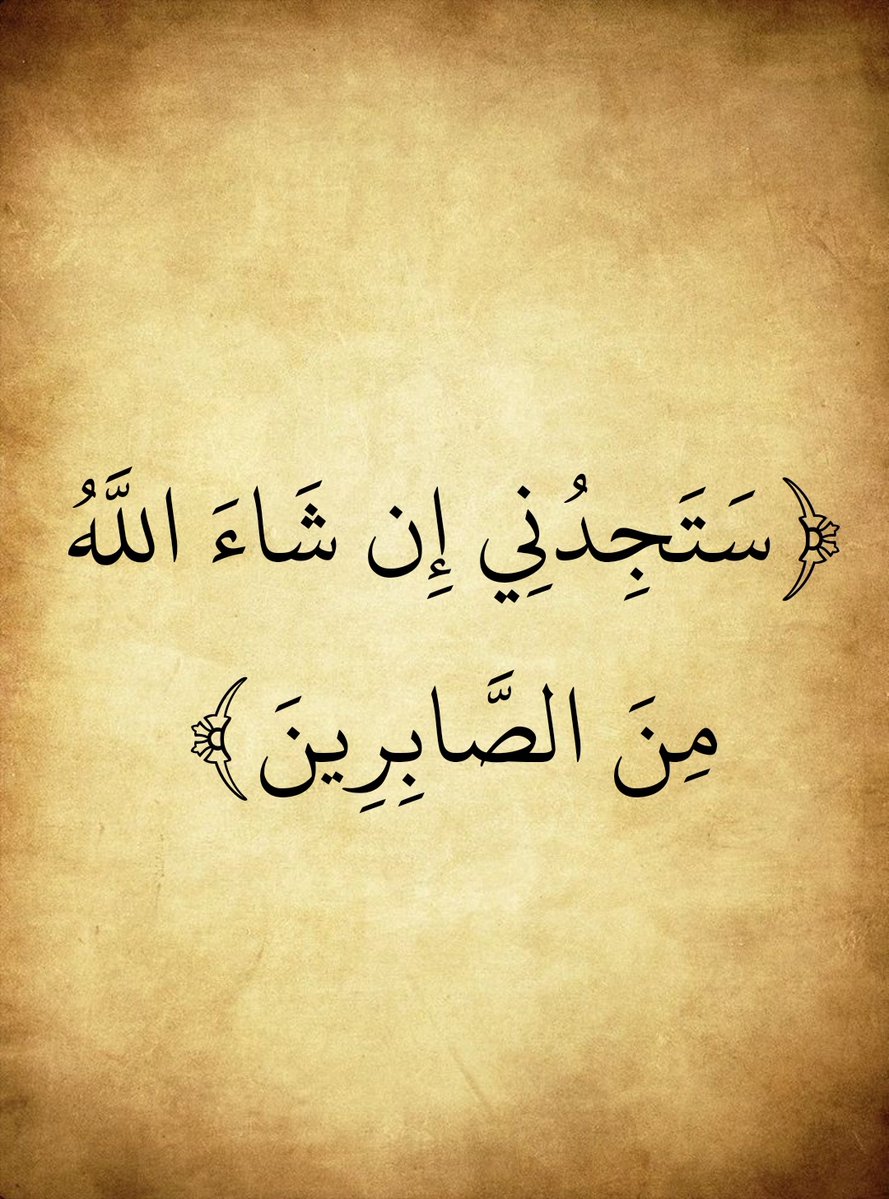 ﴿سَتَجِدُنِي إِن شَاءَ اللَّهُ
مِنَ الصَّابِرِينَ﴾